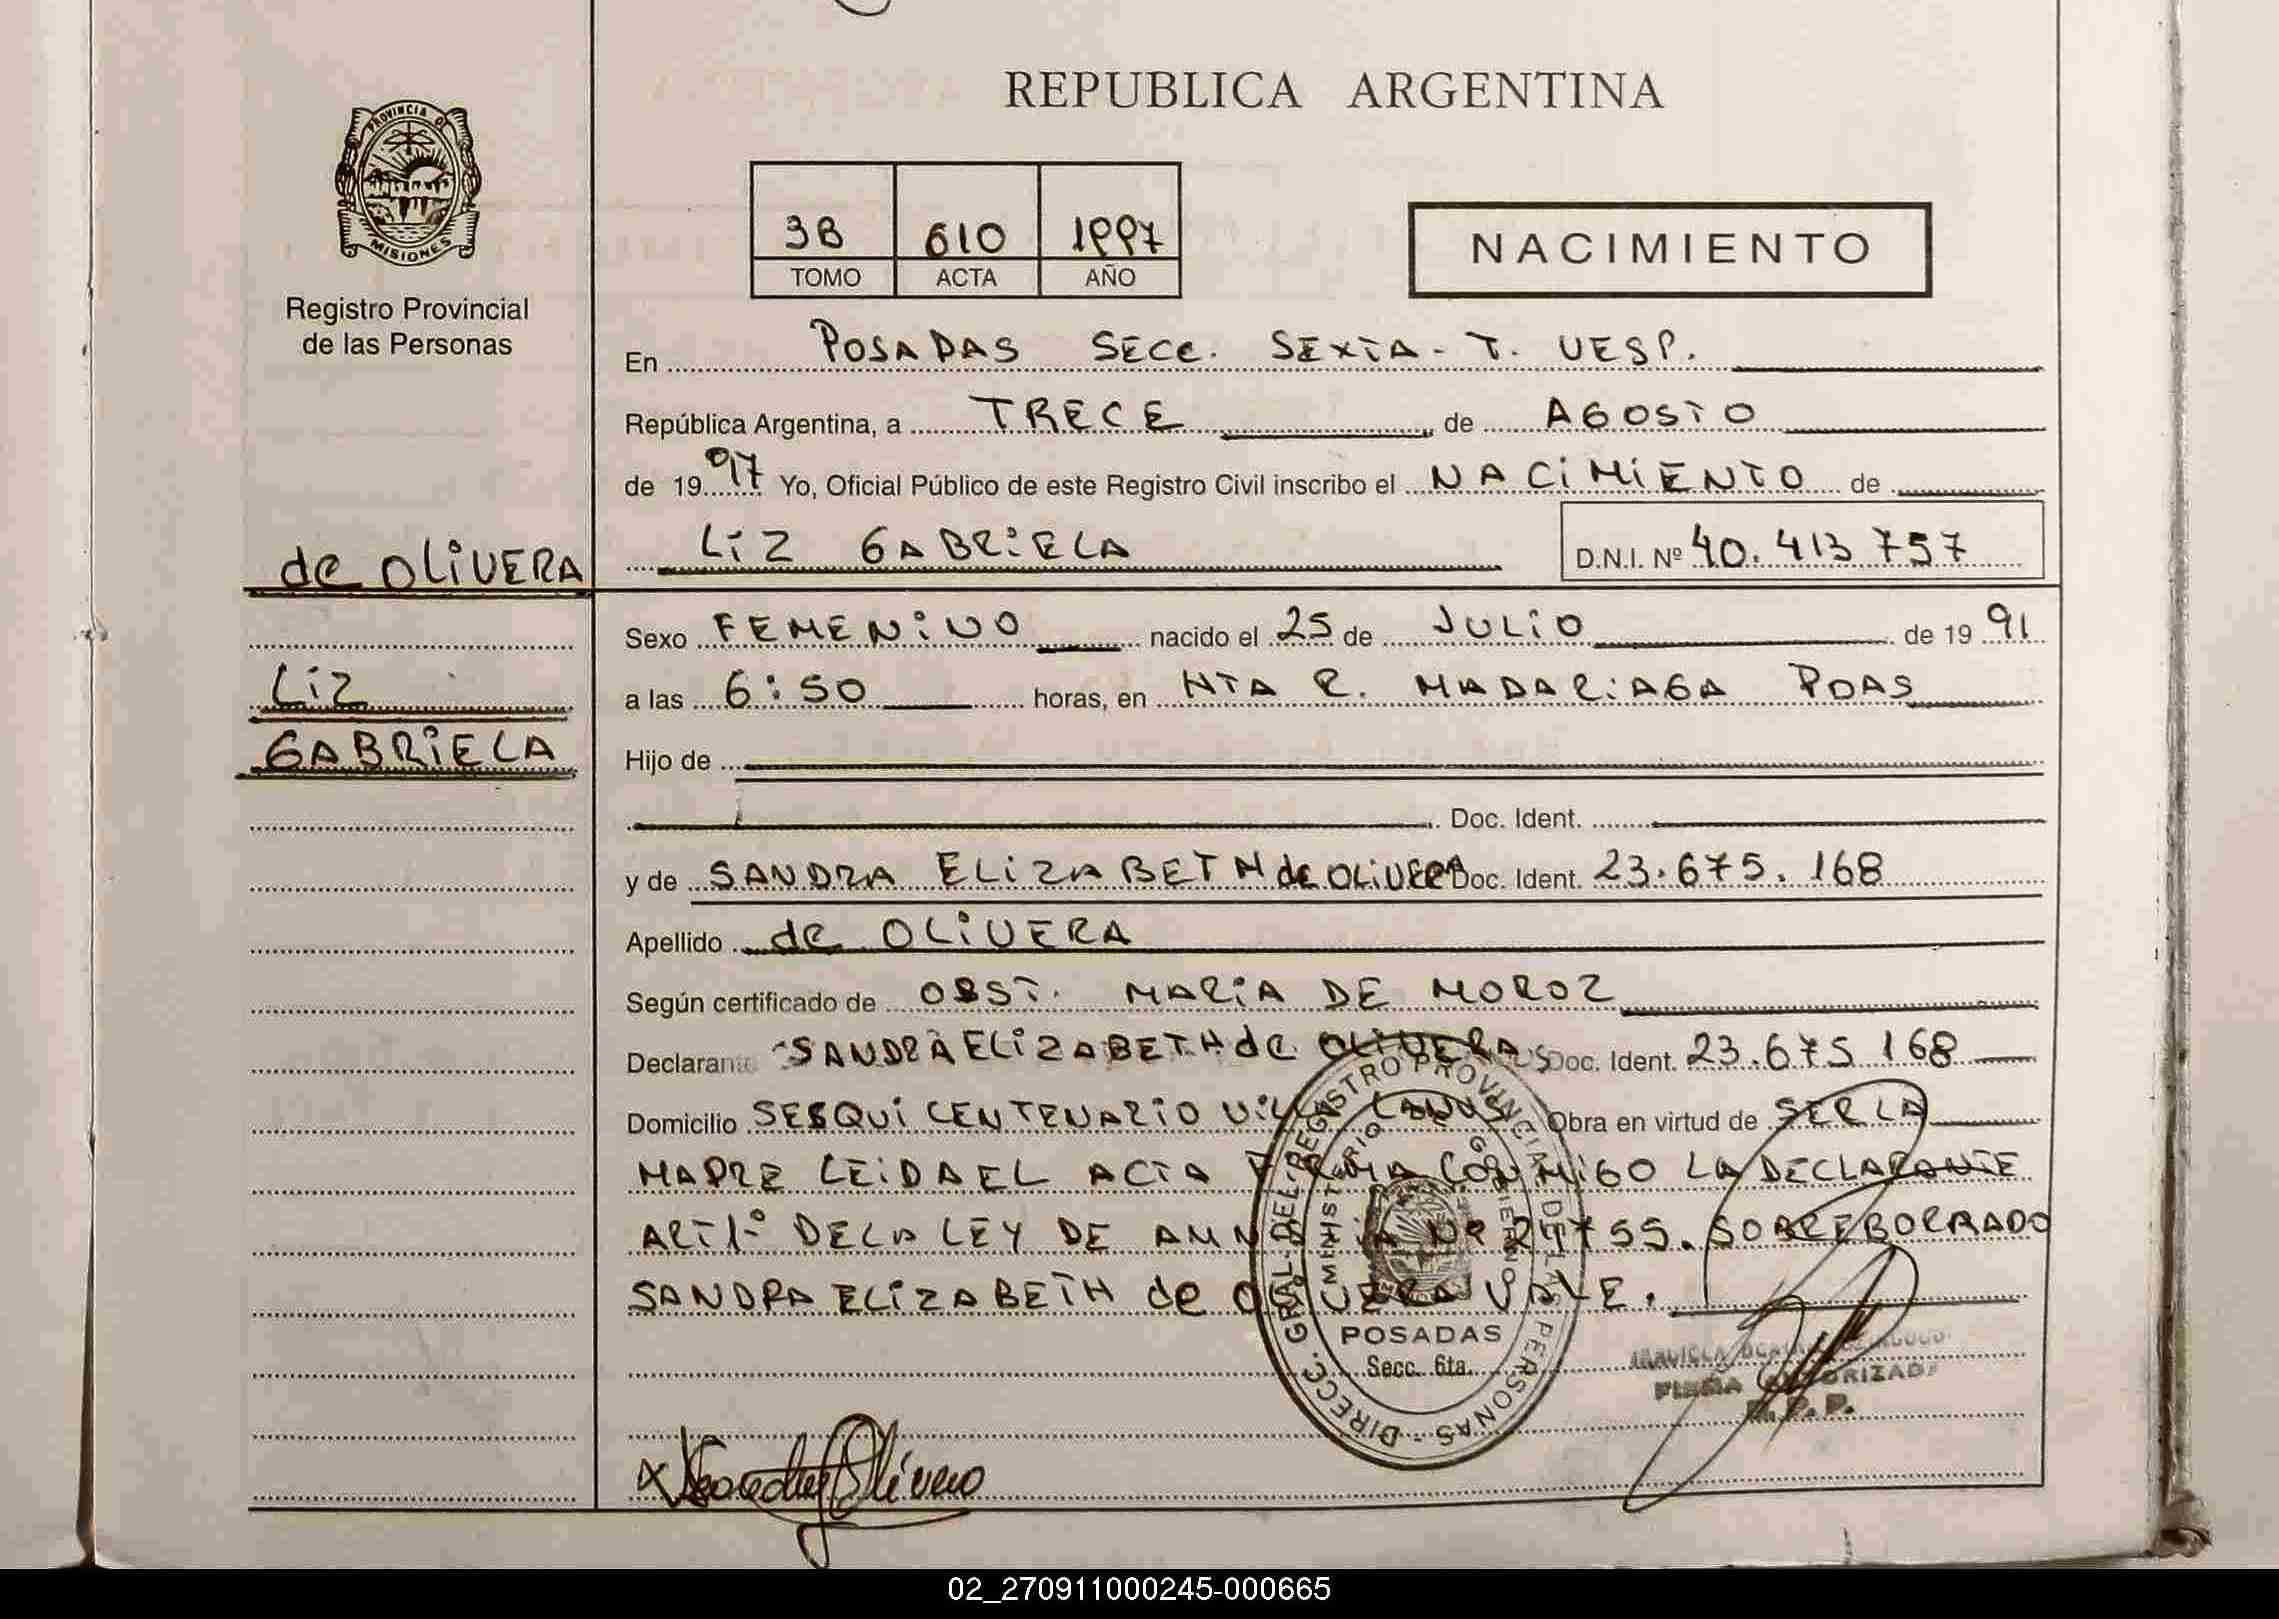 REPUBLICA ARGENTINA
PROVINCIA DE MISIONES
Registro Provincial
de las Personas
3B 610 1997
TOMO ACTA AÑO
NACIMIENTO
En POSADAS SECC. SEXTA - T. VESP.
República Argentina, a TRECE de AGOSTO
de 1997 Yo, Oficial Público de este Registro Civil inscribo el NACIMIENTO de
LIZ GABRIELA D.N.I. Nº 40.413.757
de OLIVERA
LIZ
GABRIELA
Sexo FEMENINO nacido el 25 de JULIO de 19 91
a las 6:50 horas, en HTA R. MADARIAGA PDAS
Hijo de
Doc. Ident.
y de SANDRA ELIZABETH de OLIVERA Doc. Ident. 23.675.168
Apellido de OLIVERA
Según certificado de OBST. MARIA DE MOROZ
Declarante SANDRA ELIZABETH de OLIVERA Doc. Ident. 23.675.168
Domicilio SESQUICENTENARIO VILLA LANUS Obra en virtud de SER LA
MADRE LEIDA EL ACTA FIRMA CONMIGO LA DECLARANTE
ART 1º DE LA LEY DE Nº 24755. SOBREBORRADO
SANDRA ELIZABETH de OLIVERA VALE.
DIRECC. GRAL. DEL REGISTRO PROVINCIAL DE LAS PERSONAS
MINISTERIO GOBIERNO
POSADAS
Secc. 6ta.
FIRMA AUTORIZADA
R.P.P.
02_270911000245-000665